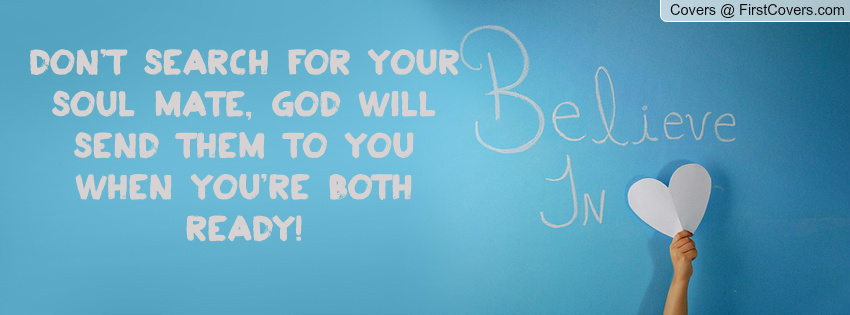 Covers @ FirstCovers.com
DON'T SEARCH FOR YOUR
SOUL MATE, GOD WILL
SEND THEM TO YOU
WHEN YOU'RE BOTH
READY!
Believe
In